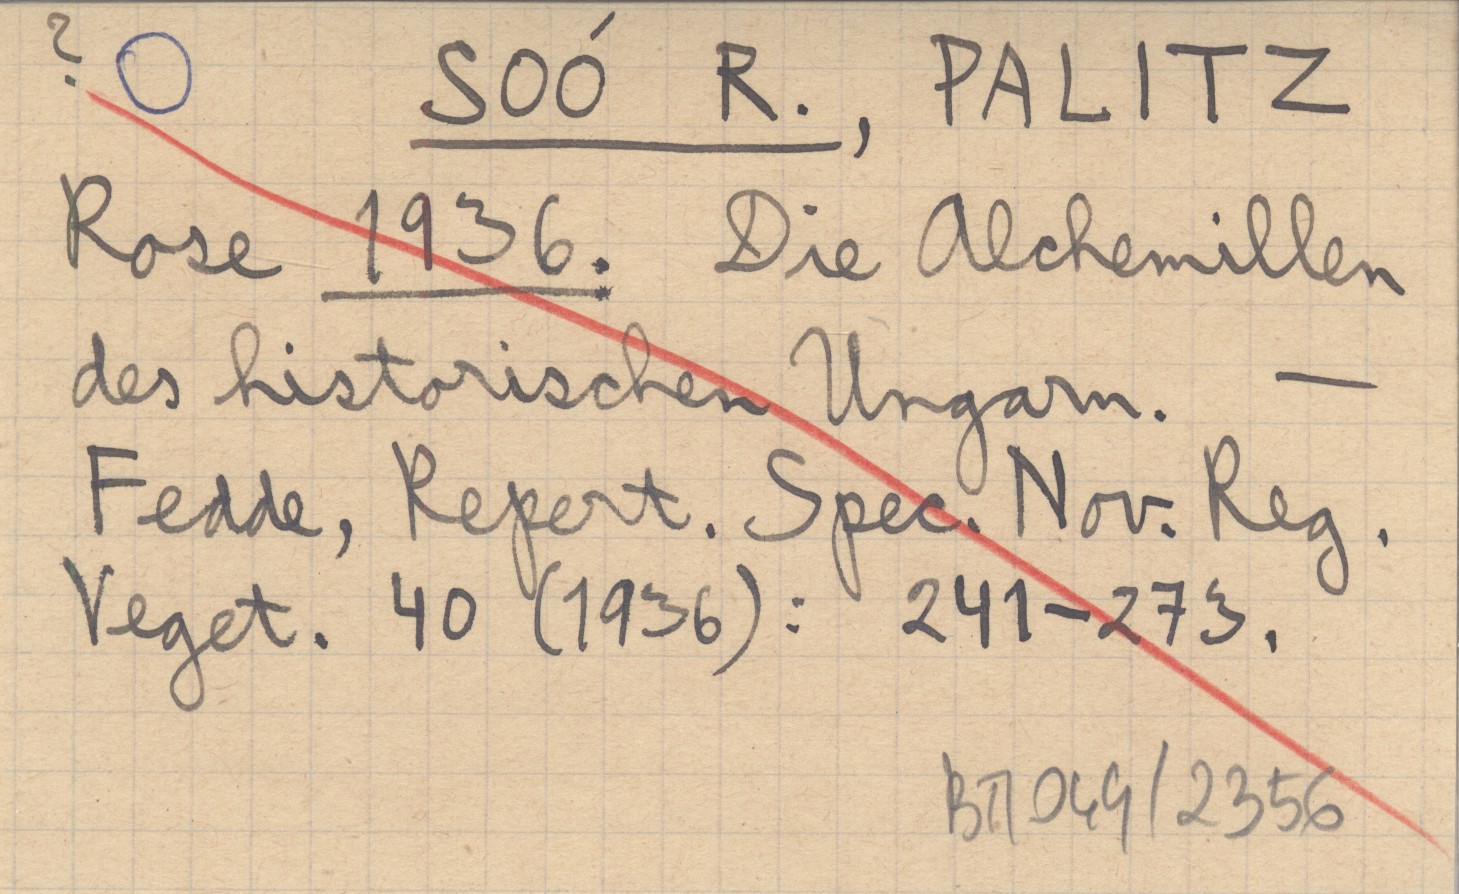 ? O SOÓ R., PALITZ
Rose 1936. Die Alchemillen
des historischen Ungarn. —
Fedde, Repert. Spec. Nov. Reg.
Veget. 40 (1936): 241-273.
ВП 049/2356